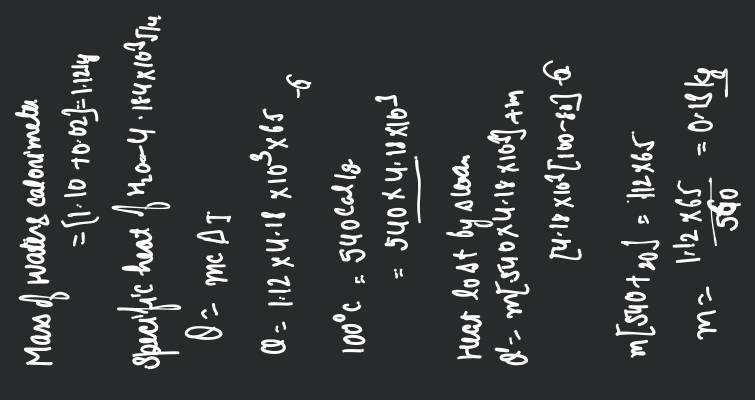 Mass of water & calorimeter
= [1.10 + 0.02] = 1.12 kg
Specific heat of H₂O = 4.184 × 10³ J/4
Q = mc ΔT
Q = 1.12 × 4.18 × 10³ × 65 -①
100°C = 540 Cal/g
= 540 × 4.18 × 10³
Heat lost by steam
Q' = m[540 × 4.18 × 10³] + m
[4.18 × 10³ [100-80] -②
m[540 + 20] = 112 × 65
m = 1.12 × 65 / 560 = 0.13 kg